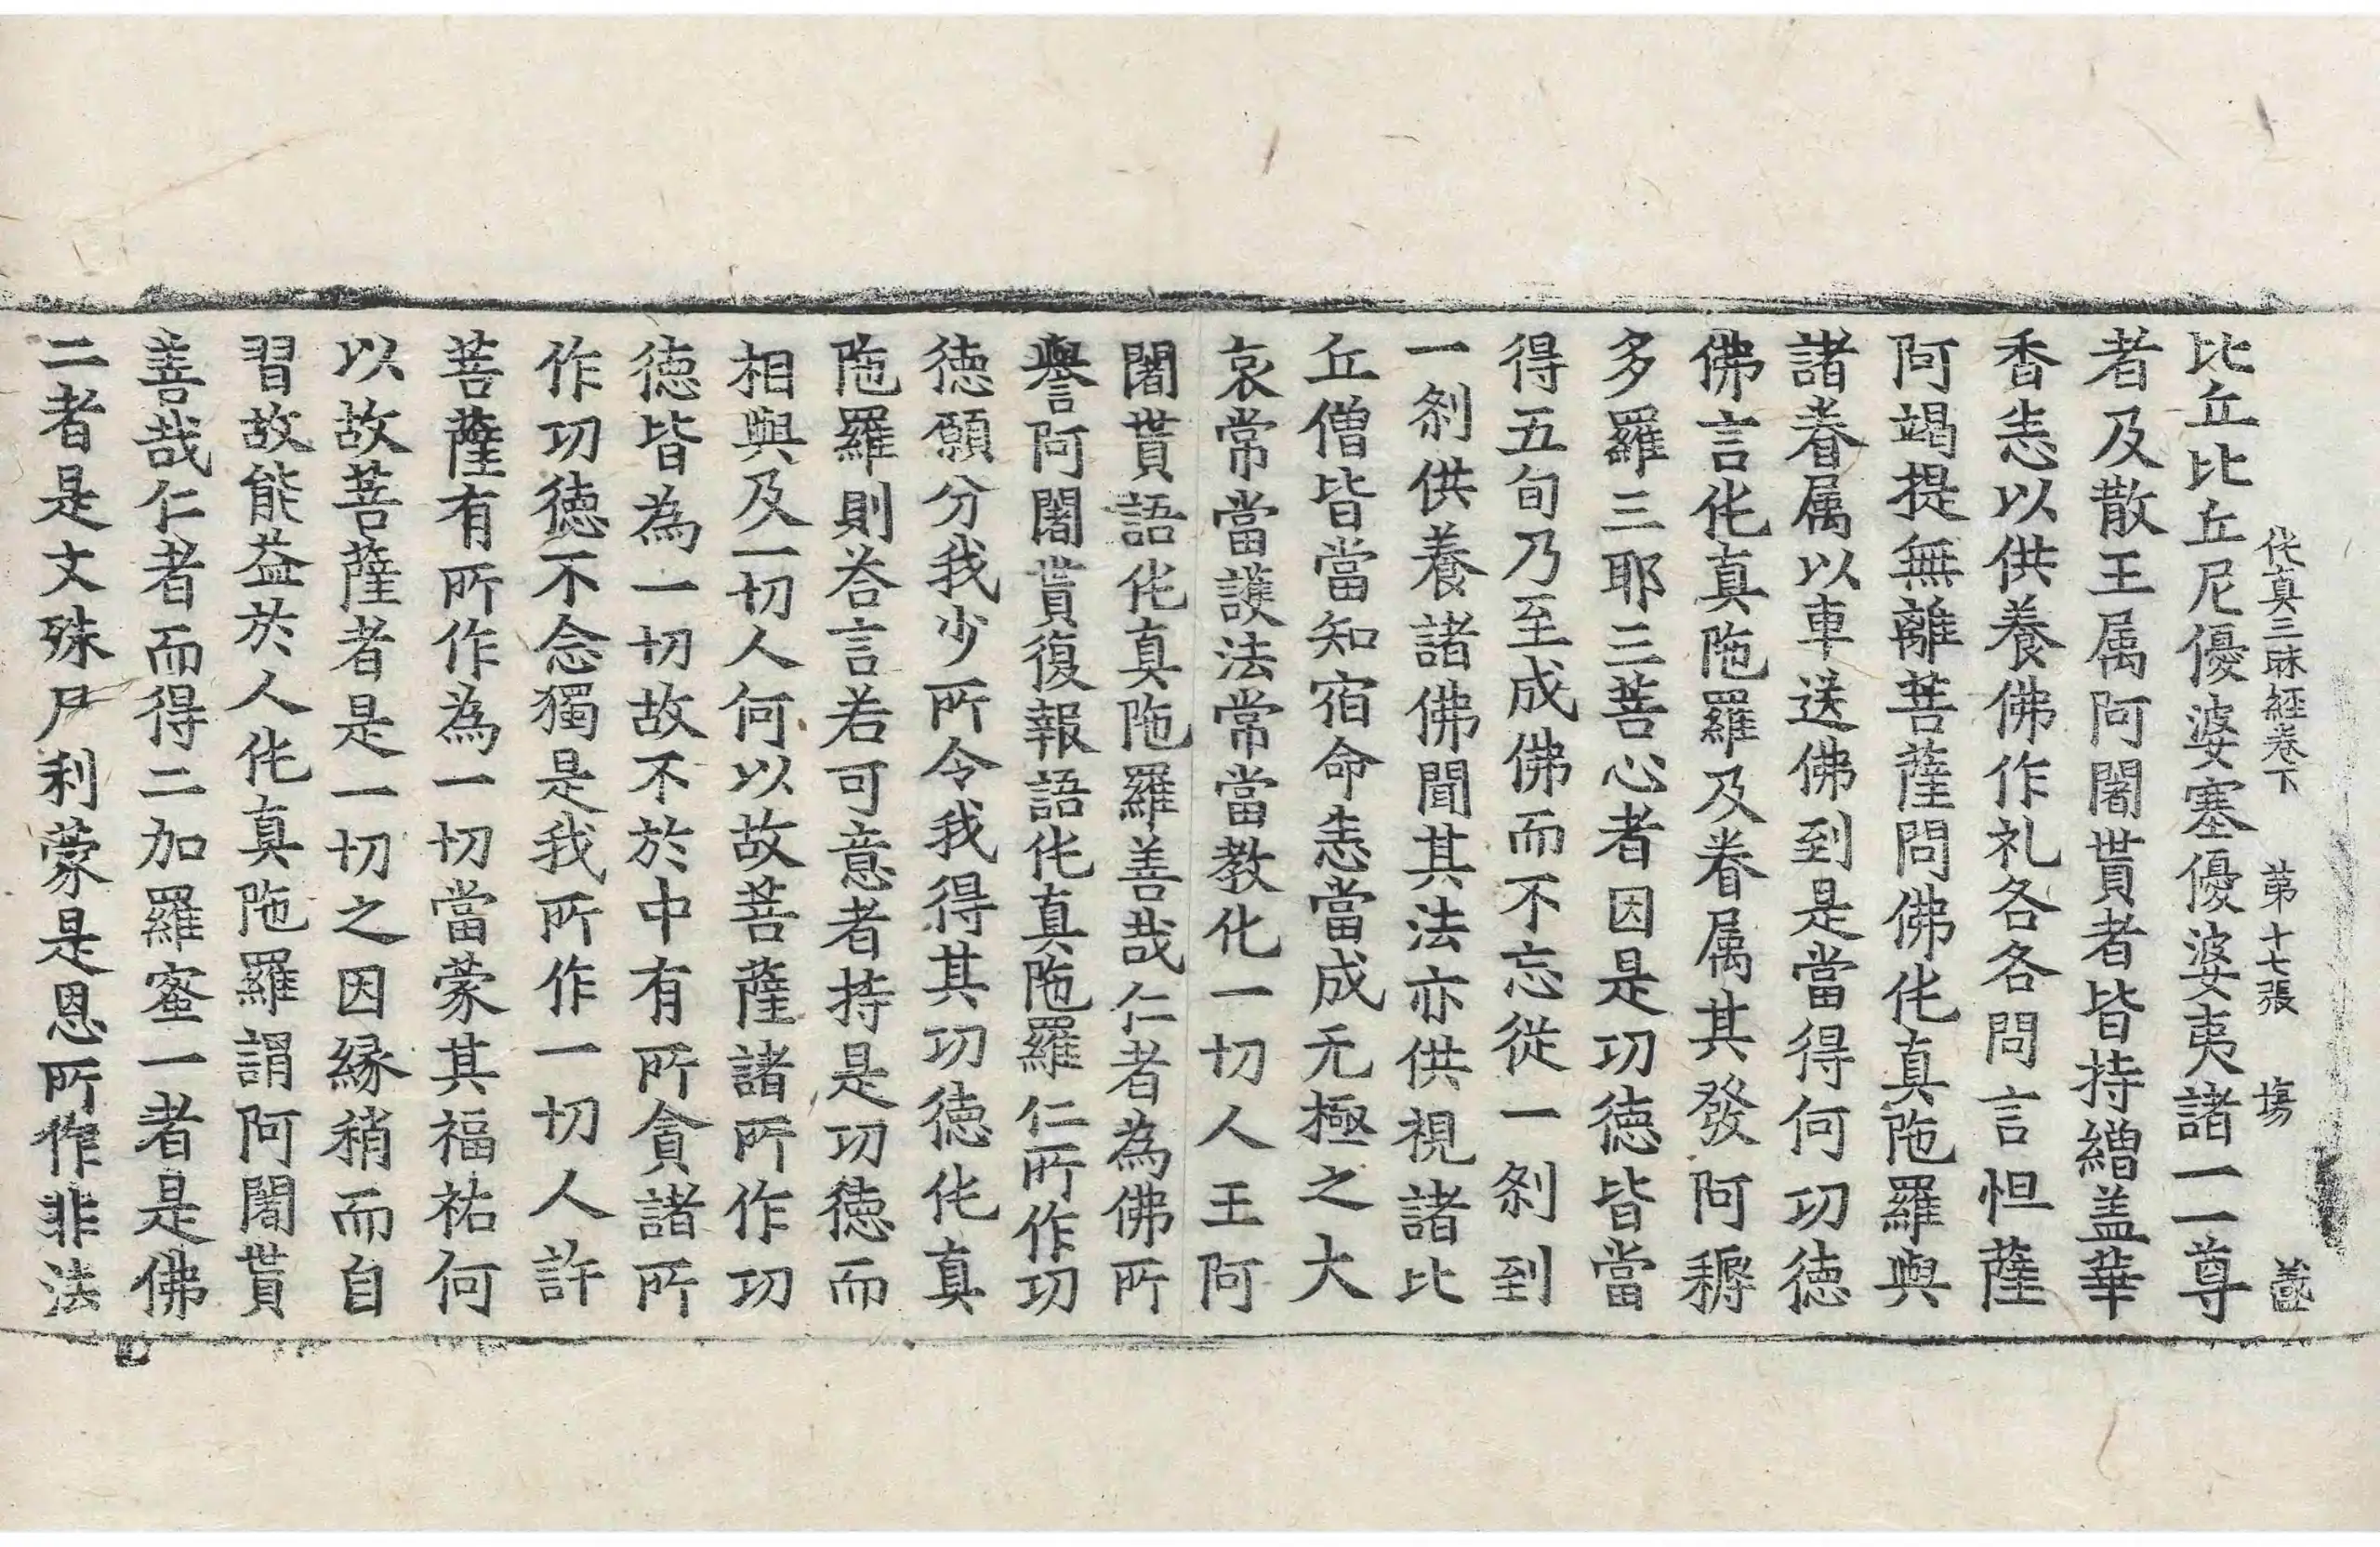 伅真三昧經卷下　第十七張　塲
比丘比丘尼優婆塞優婆夷諸一一尊
者及散王属阿闍貰者皆持繒盖華
香悉以供養佛作礼各各問言怛薩
阿竭提無離菩薩問佛伅真陁羅與
諸眷属以車送佛到是當得何功德
佛言伅真陁羅及眷属其發阿耨
多羅三耶三菩心者因是功德皆當
得五旬乃至成佛而不忘從一刹到
一刹供養諸佛聞其法亦供視諸比
丘僧皆當知宿命悉當成无極之大
哀常當護法常當教化一切人王阿
闍貰語伅真陁羅善哉仁者為佛所
譽阿闍貰復報語伅真陁羅仁所作功
德願分我少所令我得其功德伅真
陁羅則荅言若可意者持是功德而
相與及一切人何以故菩薩諸所作功
德皆為一切故不於中有所貪諸所
作功德不念獨是我所作一切人許
菩薩有所作為一切當蒙其福祐何
以故菩薩者是一切之因緣稍而自
習故能益於人伅真陁羅謂阿闍貰
善哉仁者而得二加羅蜜一者是佛
二者是文殊尸利蒙是恩所作非法